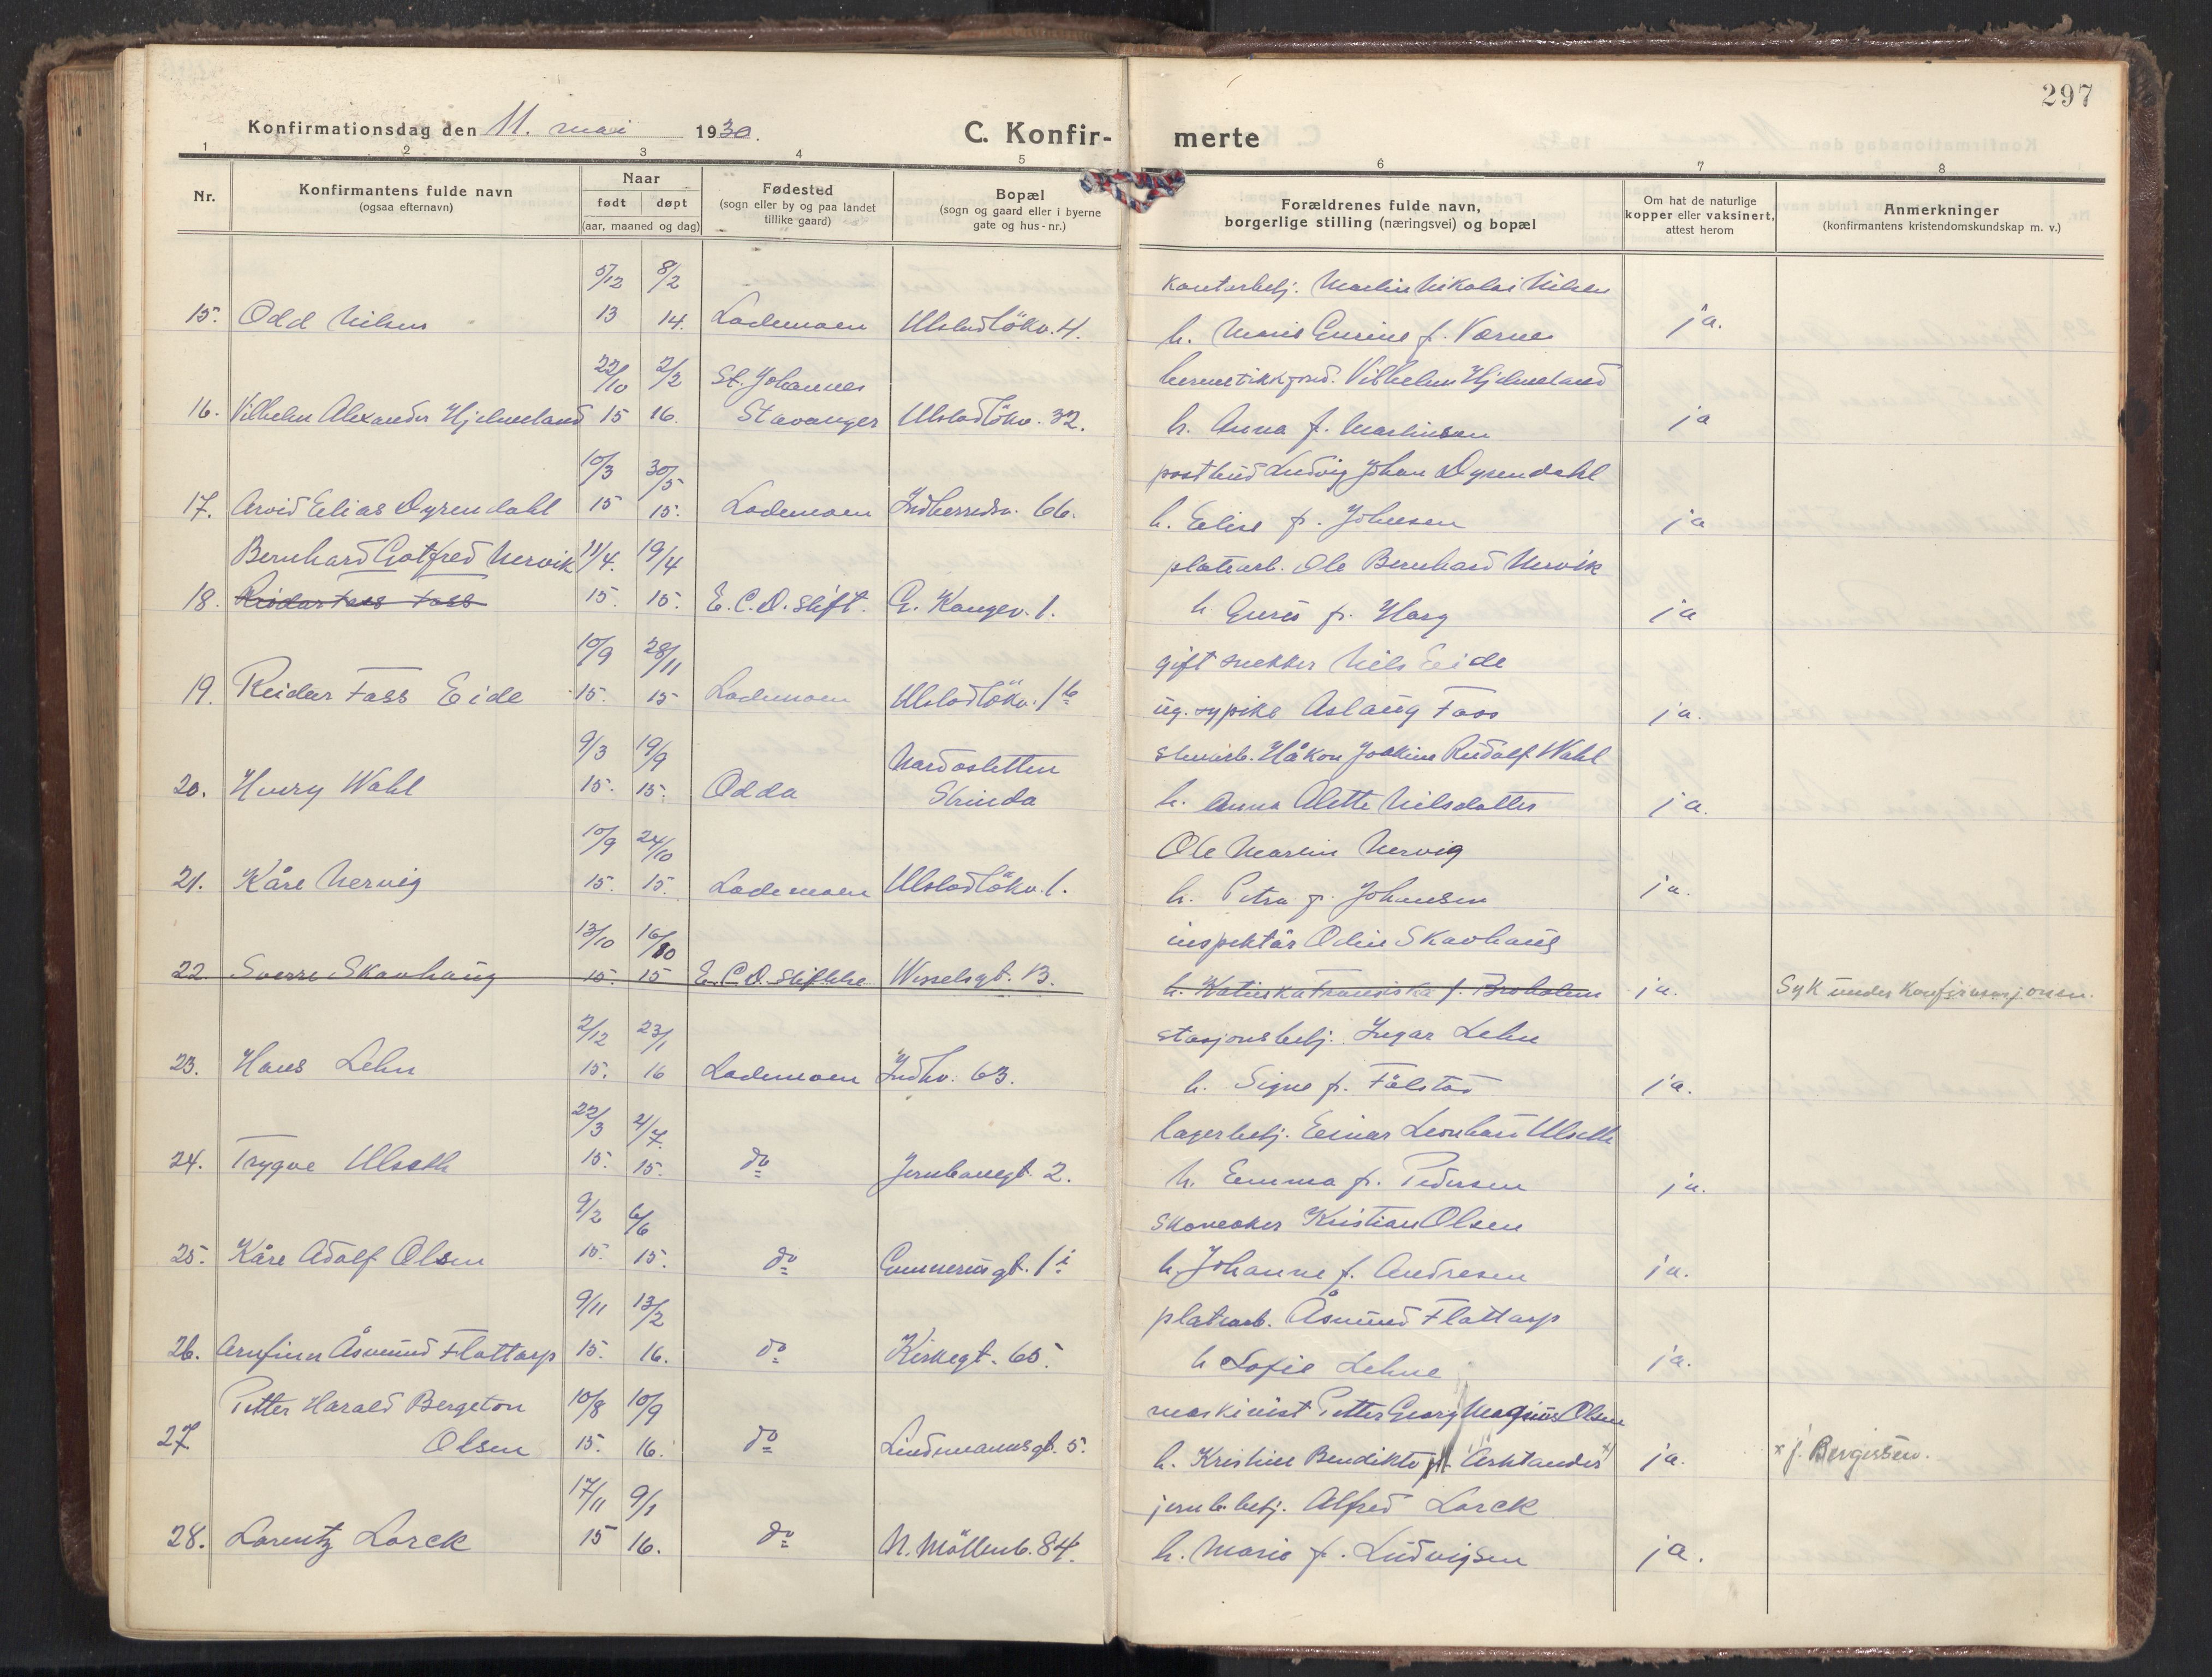 297
Konfirmationsdag den 11. mai 1930.
C. Konfir- merte
1 2 3 4 5 6 7 8
Nr.
Konfirmantens fulde navn
(ogsaa efternavn)
Naar
født døpt
(aar, maaned og dag)
Fødested
(sogn eller by og paa landet
tillike gaard)
Bopæl
(sogn og gaard eller i byerne
gate og hus-nr.)
Forældrenes fulde navn,
borgerlige stilling (næringsvei) og bopæl
Om hat de naturlige
kopper eller vaksinert,
attest herom
Anmerkninger
(konfirmantens kristendomskundskap m. v.)
5/12 8/2 kontorbetj. Martin Nikolai Nilsen
15. Odd Nilsen 13 14. Lademoen Ulstadløkv. 4. h. Marie Gurine f. Værnes ja.
22/10 2/2 St. Johannes Vilhelm Hjelmeland
16. Vilhelm Alexander Hjelmeland 15 16. Stavanger Ulstadløkv. 32. h. Anna f. Martinsen ja
10/3 30/5 postbud Ludvig Johan Dyrendahl
17. Arvid Elias Dyrendahl 15 15. Lademoen Indherredsv. 66. h. Elise f. Johnsen ja
Bernhard Gotfred Nervik 11/4. 19/4 platearb. Ole Bernhard Nervik
18. Reidar Fass 15. 15. E. C. D. stift. G. Kongev. 1. h. f. ja
10/9 28/11 gift snekker Nils Eide
19. Reidar Fass Eide 15. 15 Lademoen Ulstadløkv. 1b ug. sypike Aslaug Fass ja.
9/3 19/9 Nardosletten Håkon Joakim Rudolf Wahl
20. Henry Wahl 15. 15. Odda Strinda h. Anna Alette Nilsdatter ja.
10/9 24/10 Ole Martin Nervig
21. Kåre Nervig 15. 15. Lademoen Ulstadløkv. 1. h. Petra f. Johansen ja.
13/10 16/10 inspektør Odin Skavhaug
22. Sverre Skavhaug 15. 15 E. C. D. stiftelse Wesselsgt. 13. h. Katinka Fransiska f. Broholm ja. Syk under konfirmasjonen.
2/12 23/1 stasjonsbetj. Ingar Lehn
23. Hans Lehn 15. 16 Lademoen Indhv. 63. h. Signe f. Falstad ja.
22/3 4/7 lagerbetj. Einar Leonhard Ulseth
24. Trygve Ulseth 15. 15. do Jernbanegt. 2. h. Emma f. Pedersen ja.
9/2 6/6 skomaker Kristian Olsen
25. Kåre Adolf Olsen 15. 15. do Gunnerusgt. 1i h. Johanne f. Andresen ja.
9/11 13/2 platearb. Åsmund Flattarp
26. Arnfinn Åsmund Flattarp 15. 16. do Kirkegt. 65. h. Sofie Lehne ja.
Petter Harald Bergeton 10/8 10/9 maskinist Petter Georg Magnus Olsen
27. Olsen 15. 16. do Lindemannsgt. 5. h. Kristine Bendikte x) ja. x f. Bergersen.
17/11 9/1 jernb.betj. Alfred Lorck
28. Lorentz Lorck 15 16. do N. Møllenb. 84. h. Marie f. Ludvigsen ja.